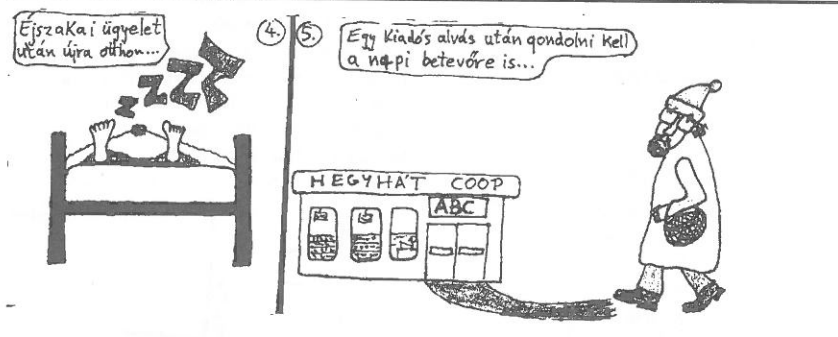 Éjszakai ügyelet
után újra otthon...
4.
z z Z Z Z
5.
Egy kiadós alvás után gondolni kell
a napi betevőre is...
HEGYHÁT COOP
ABC